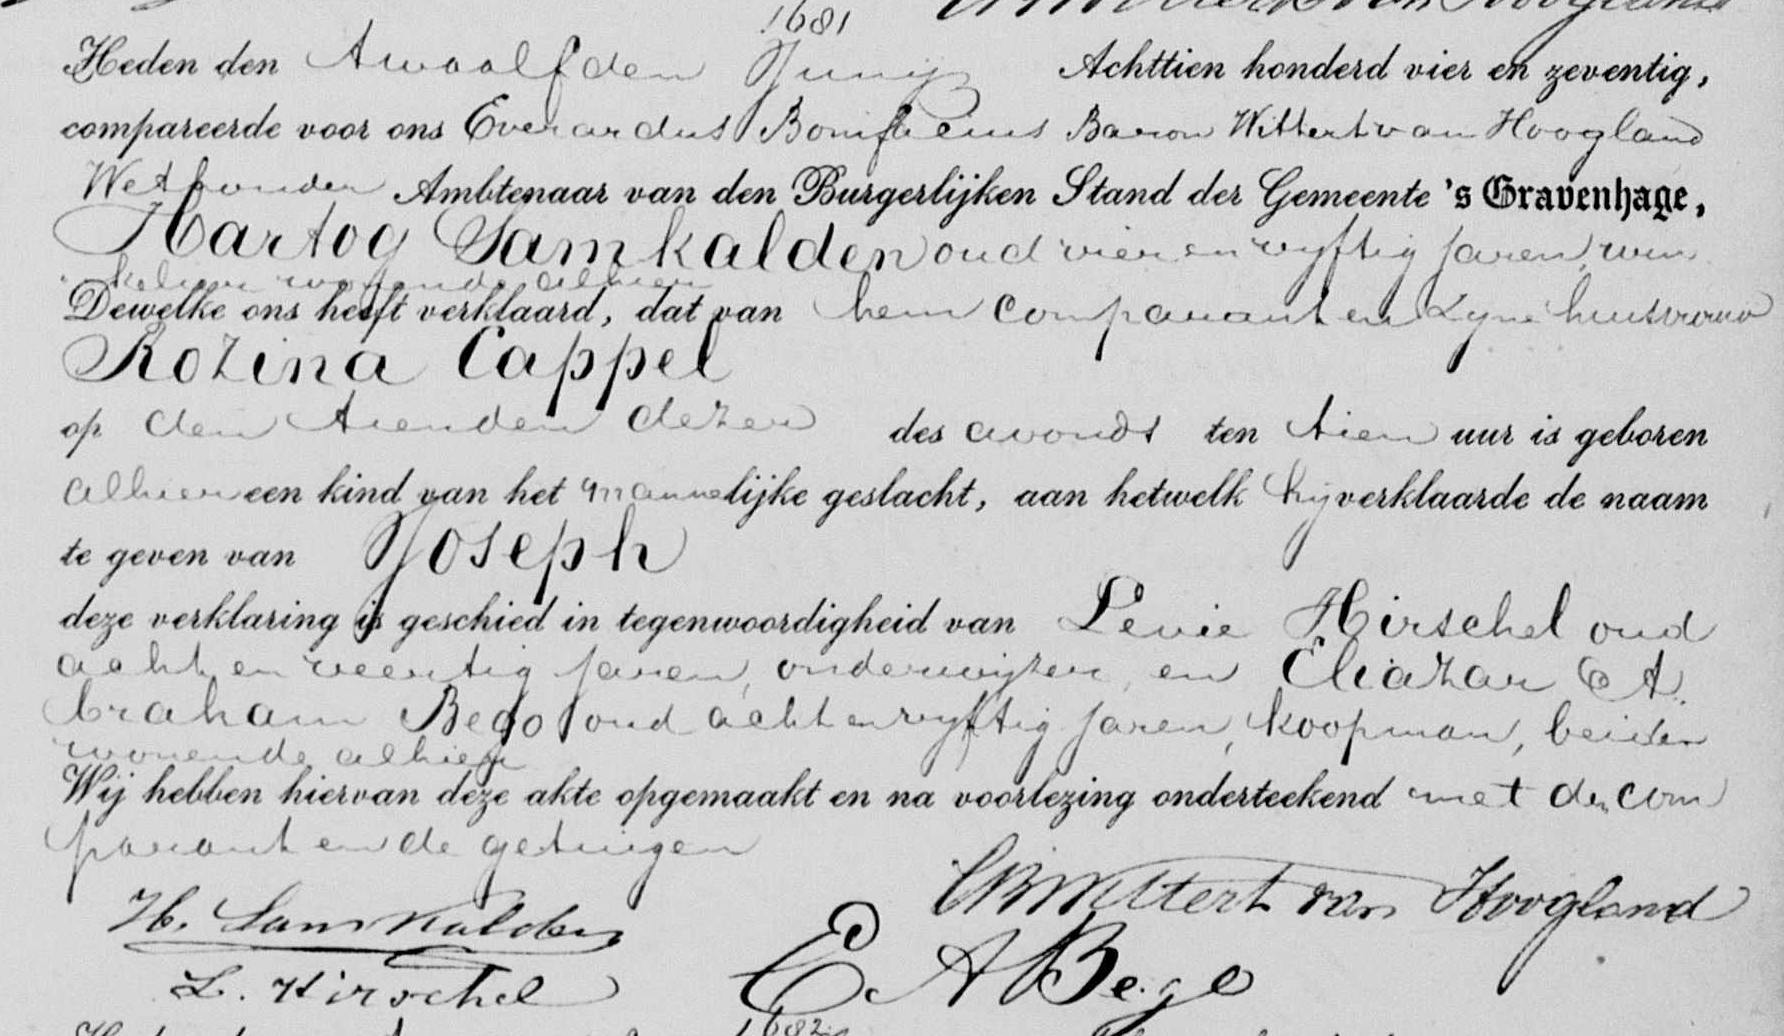 1681
Heden den twaalfden Junij Achttien honderd vier en zeventig,
compareerde voor ons Everardus Bonifacius Baron Wittert van Hoogland
Wethouder Ambtenaar van den Burgerlijken Stand der Gemeente 's Gravenhage,
Hartog Samkalden oud vier en vyftig jaren, win
kelier wonende alhier
Dewelke ons heeft verklaard, dat van hem comparant en zyne huisvrouw
Rozina Cappel
op den tienden dezer des avonds ten tien uur is geboren
alhier een kind van het mannelijke geslacht, aan hetwelk hij verklaarde de naam
te geven van Joseph
deze verklaring is geschied in tegenwoordigheid van Levie Hirschel oud
acht en veertig jaren, onderwijzer, en Eliazar A
braham Bego oud acht en vyftig jaren, koopman, beiden
wonende alhier
Wij hebben hiervan deze akte opgemaakt en na voorlezing onderteekend met den com
parant en de getuigen
Wittert van Hoogland
H. Samkalden
E A Bego
L. Hirschel
1682